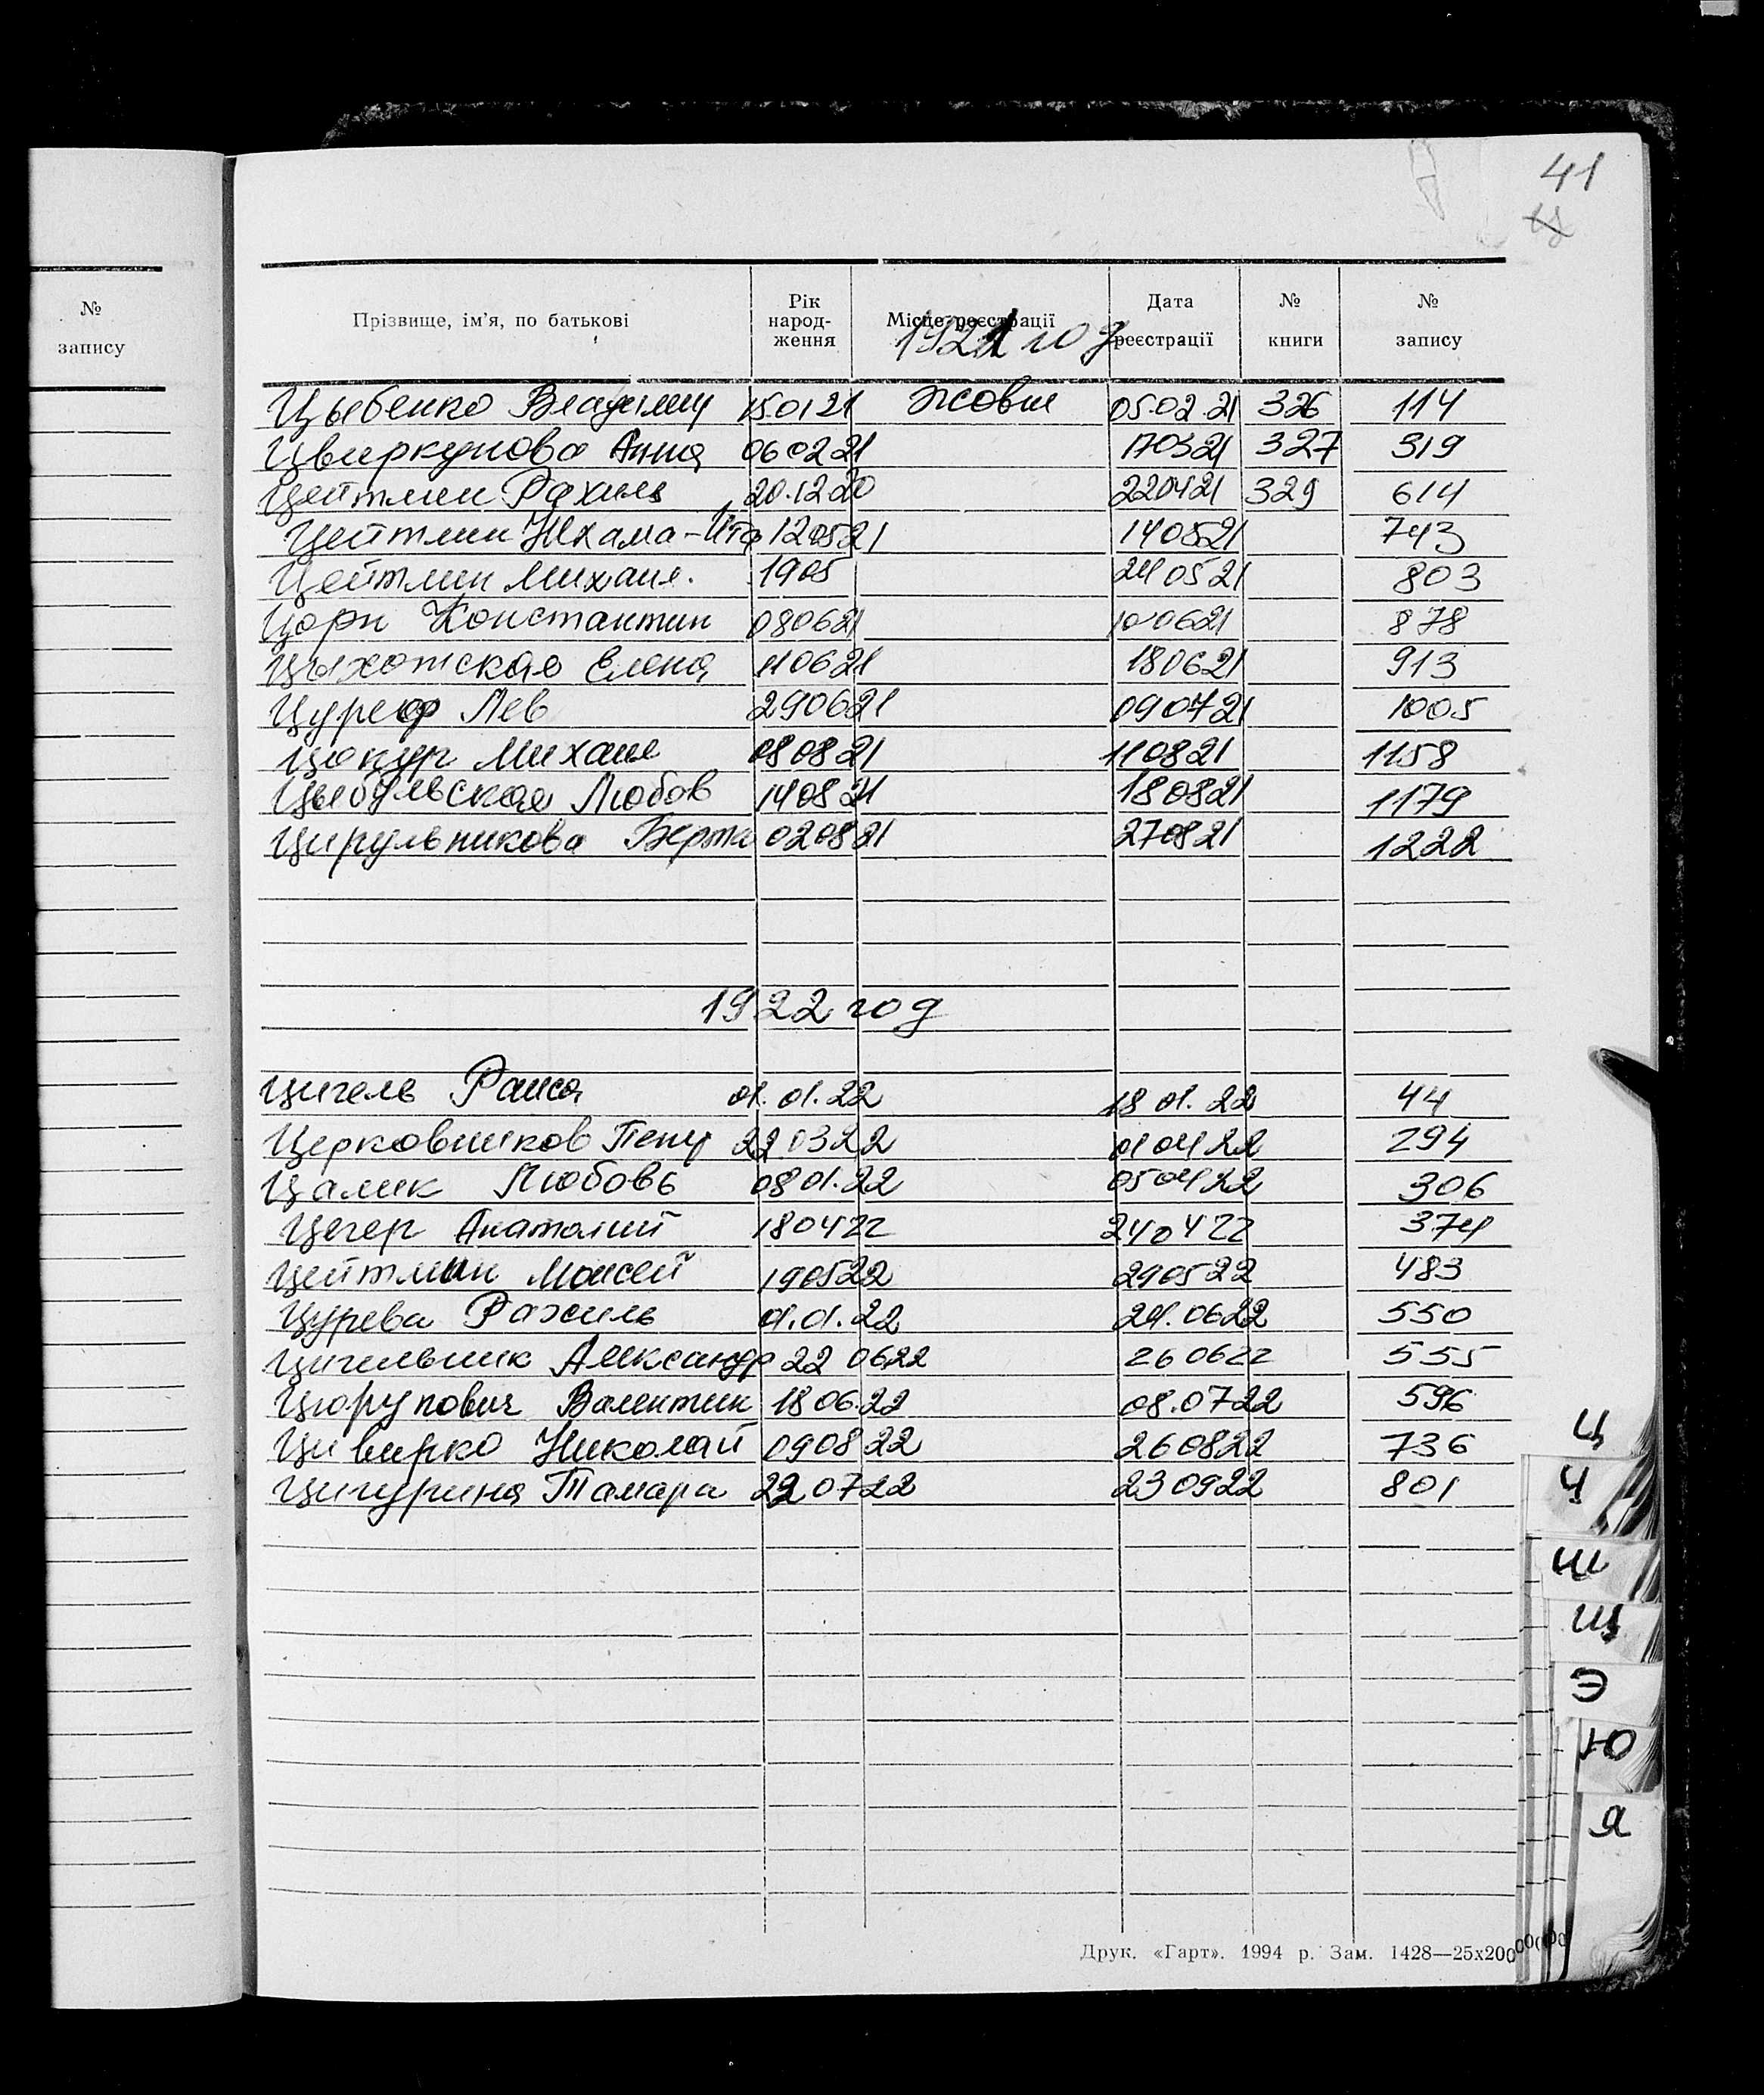 41
№
запису
Прізвище, ім'я, по батькові
Рік
народ-
ження
Місце реєстрації
Дата
реєстрації
№
книги
№
запису
1921 год
Цыбенко Владимир 15.01 21 Жовтн 05.02 21 326 114
Цвиркунова Анна 06 02 21 170321 327 319
Цейтлин Рахиль 20.12 20 220421 329 614
Цейтлин Нхама-Ита 120521 140521 743
Цейтлин Михаил. 1905 240521 803
Цорн Константин 080621 100621 878
Цыхотская Елена 110621 180621 913
Лев 290621 090721 1005
Цокур Михаил 080821 110821 1158
Цыбульская Любов 140821 180821 1179
Цирульникова Берта 020821 270821 1222
1922 год
Цигель Раиса 01.01.22 18 01.22 44
Церковников Петр 22 0322 010422 294
Цалик Любовь 08 01.22 050422 306
Цегер Анатолий 180422 240422 374
Цейтлин Моисей 190522 290522 483
Цурева Рахиль 01.01.22 24.0622 550
Цигельник Александр 22 0622 260622 555
Цюрупович Валентин 18 06.22 08.0722 596
Цивирко Николай 090822 260822 736
Цигурина Тамара 22 0722 230922 801
Ц
Ч
Ш
Щ
Э
Ю
Я
Друк. «Гарт». 1994 р. Зам. 1428—25х200